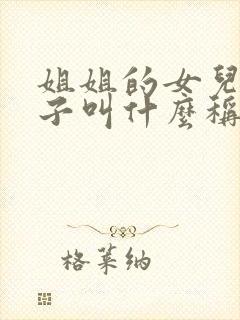 姐姐的女兒
子叫什麼稱
格萊納